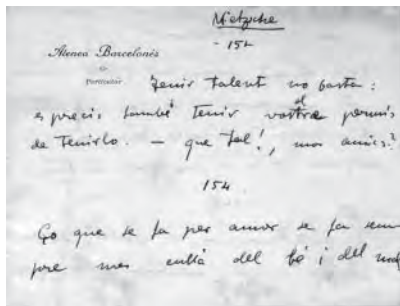 Nietzsche
- 152
Ateneo Barcelonés
Particular
Tenir talent no basta:
es precis també tenir vostre permis
el
de tenirlo. - que tal!, mos amics?
154
Ço que se fa per amor se fa sem
pre mes enllà del bé i del mal